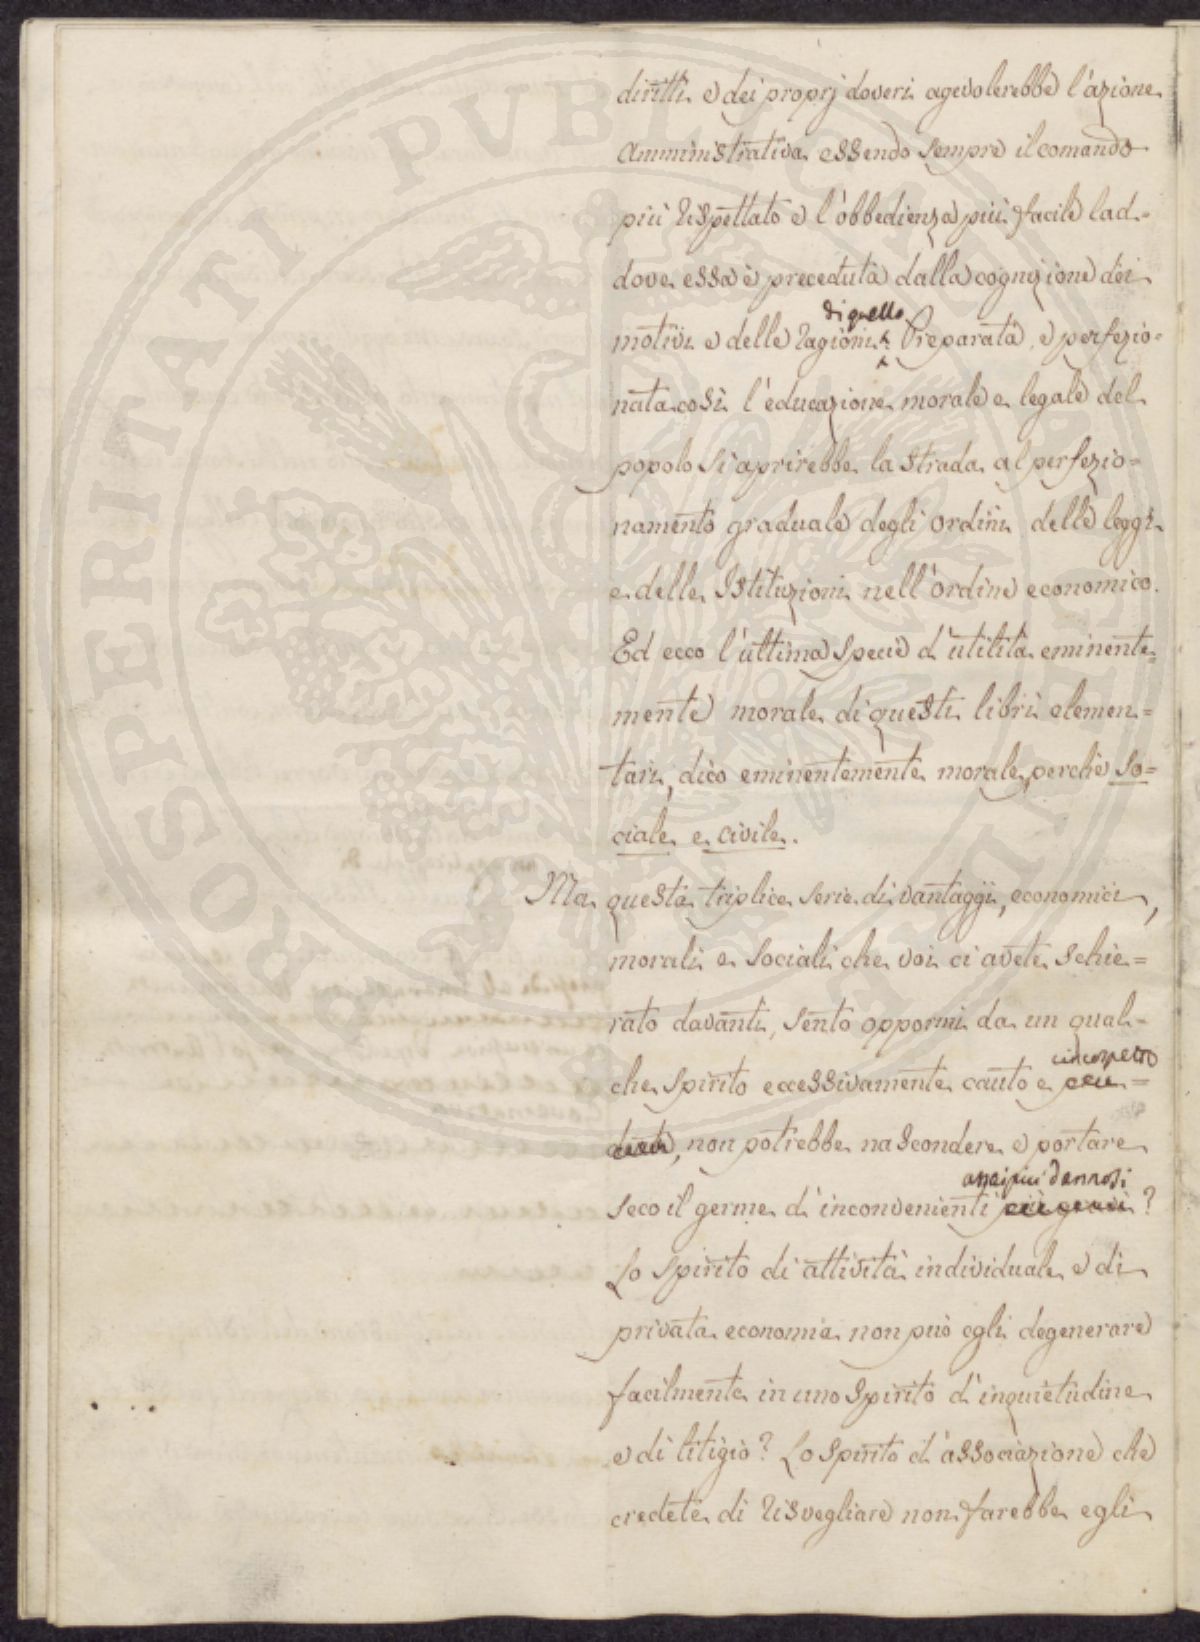 diritti e dei proprj doveri agevolerebbe l'azione
Amministrativa essendo sempre il comando
più rispettato e l'obbedienza più facile lad-
dove essa è preceduta dalla cognizione dei
motivi e delle ragioni di quello. Preparata, e perfezio=
nata così l'educazione morale e legale del
popolo si aprirebbe la strada al perfezio=
namento graduale degli ordini delle leggi
e delle Istituzioni nell'ordine economico.
Ed ecco l'ultima specie d'utilità eminente=
mente morale di questi libri elemen=
tari, dico eminentemente morale, perchè so=
ciale e civile.
Ma questa triplice serie di vantaggi, economici,
morali e sociali che voi ci avete schie=
rato davanti, sento oppormi da un qual-
che spirito eccessivamente cauto e circospetto
, non potrebbe nascondere e portare
seco il germe d'inconvenienti assai più dannosi ?
Lo spirito di attività individuale e di
privata economia non può egli degenerare
facilmente in uno spirito d'inquietudine
e di litigio? Lo spirito d'associazione che
credete di risvegliare non farebbe egli
PROSPERITATI PUBLICAE